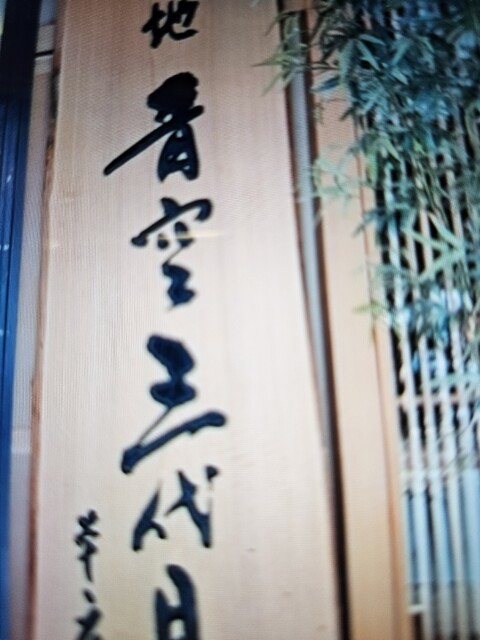 地青空三代目